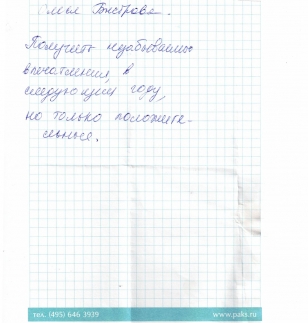 Семья Быстровых.
Получить незабываемые
впечатления, в
следующем году,
но только положите-
льные.
тел. (495) 646 3939
www.paks.ru